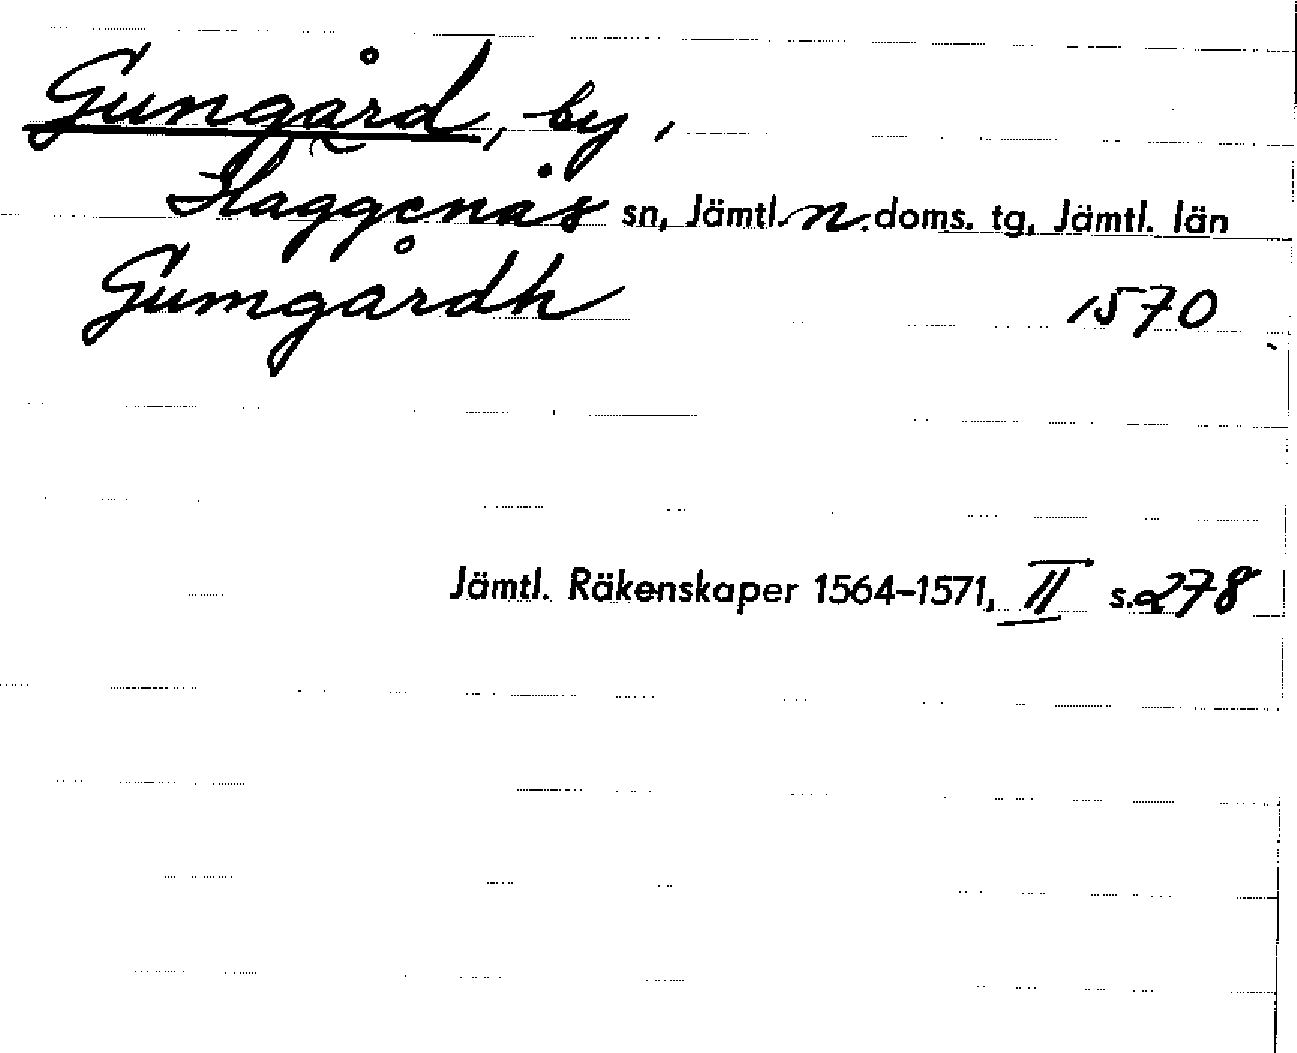 Gungård, by,
Häggenås sn, Jämtl. n. doms. tg, Jämtl. län
Gumgårdh 1570
Jämtl. Räkenskaper 1564-1571, II s. 278